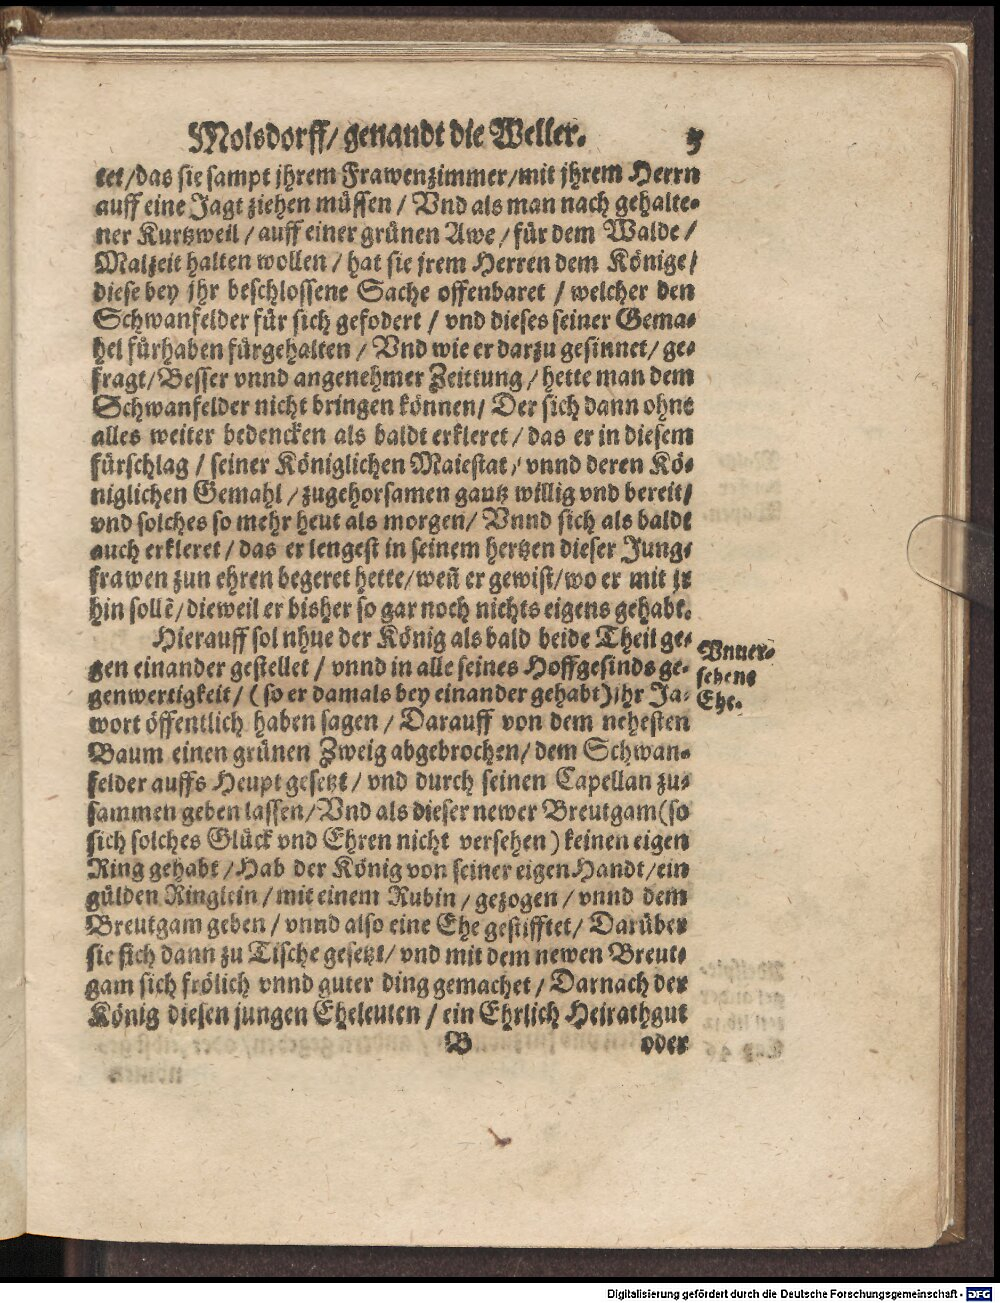 Molsdorff/ genandt die Weller. 5
tet/das sie sampt jhrem Frawenzimmer/mit jhrem Herrn
auff eine Jagt ziehen müssen / Vnd als man nach gehalte-
ner Kurtzweil / auff einer grünen Awe / für dem Walde /
Malzeit halten wollen / hat sie jrem Herren dem Könige/
diese bey jhr beschlossene Sache offenbaret / welcher den
Schwanfelder für sich gefodert / vnd dieses seiner Gema-
hel fürhaben fürgehalten / Vnd wie er darzu gesinnet/ ge-
fragt/ Besser vnnd angenehmer Zeittung / hette man dem
Schwanfelder nicht bringen können/ Der sich dann ohne
alles weiter bedencken als baldt erkleret / das er in diesem
fürschlag / seiner Königlichen Maiestat / vnnd deren Kö-
niglichen Gemahl / zugehorsamen gantz willig vnd bereit/
vnd solches so mehr heut als morgen/ Vnnd sich als baldt
auch erkleret / das er lengest in seinem hertzen dieser Jung-
frawen zun ehren begeret hette/weñ er gewist/wo er mit jr
hin sollẽ/ dieweil er bisher so gar noch nichts eigens gehabt.
Hierauff sol nhue der König als bald beide Theil ge-
gen einander gestellet / vnnd in alle seines Hoffgesinds ge-
genwertigkeit/ ( so er damals bey einander gehabt) jhr Ja-
wort öffentlich haben sagen / Darauff von dem nehesten
Baum einen grünen Zweig abgebrochen/ dem Schwan-
felder auffs Heupt gesetzt / vnd durch seinen Capellan zu-
sammen geben lassen/Vnd als dieser newer Breutgam(so
sich solches Glück vnd Ehren nicht versehen) keinen eigen
Ring gehabt / Hab der König von seiner eigen Handt/ein
gülden Ringlein / mit einem Rubin / gezogen / vnnd dem
Breutgam geben / vnnd also eine Ehe gestifftet/ Darüber
sie sich dann zu Tische gesetzt/ vnd mit dem newen Breut-
gam sich frölich vnnd guter ding gemachet / Darnach der
König diesen jungen Eheleuten / ein Ehrlich Heirathgut
B oder
Vnuer-
sehene
Ehe.
Digitalisierung gefördert durch die Deutsche Forschungsgemeinschaft - DFG